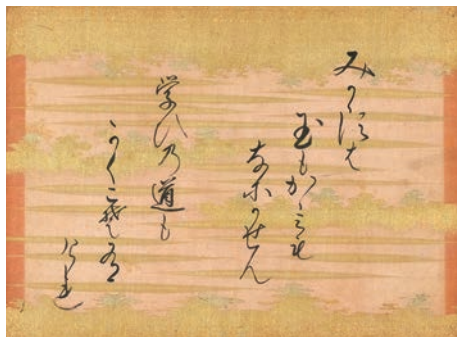 みかゝすは
玉もかゝみも
なにかせん
学ひ乃道も
かくこそ有
けれ